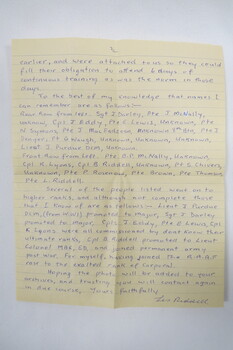 earlier, and were attached to us so they could
fill their obligation to attend 6 days of
continuous training as was the norm in those
days.
To the best of my knowledge that names I
can remember are as follows:-
Row from left. Sgt J Danley, Pte J McNally,
Unknown, Cpl J Eddly, Pte C Lewis, Unknown, Pte
W Symons, Pte J MacFadzean, Unknown, Pte J
Sanger, Pt B Waugh, Unknown, Unknown, Unknown
Lieut J Purdue SCM, Unknown.
Front Row from left. Pte A.P. McNally, Unknown
Cpl K. Squires, Cpl B Riddell, Unknown, Pt I Chivers,
Unknown, Pte P. Noreman, Pte Brown, Pte Thomson
Pte L. Riddell.
Several of the people listed went on to
higher ranks, and although not complete those
that I know of are as follows:- Lieut J Purdue
SCM, promoted to Major, Sgt J Danley
promoted to Major, Cpl J Eddy, Pte C Lewis, Cpl
K Squires were all commissioned by dont know their
ultimate rank, Cpl B Riddell promoted to Lieut
Colonel and joined permanent army
post war. For myself, having joined the R.A.A.F
rose to the exalted rank of Corporal.
Hoping the photo will be added to your
archives, and trusting you will contact again
Yours faithfully
Riddell